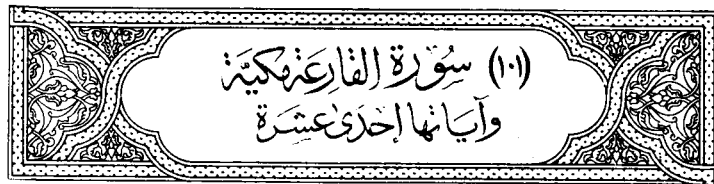 (١٠١) سُورَةُ القَارِعَةِ مَكِيَّة
وَآيَاتُهَا إِحْدَى عَشَرَة